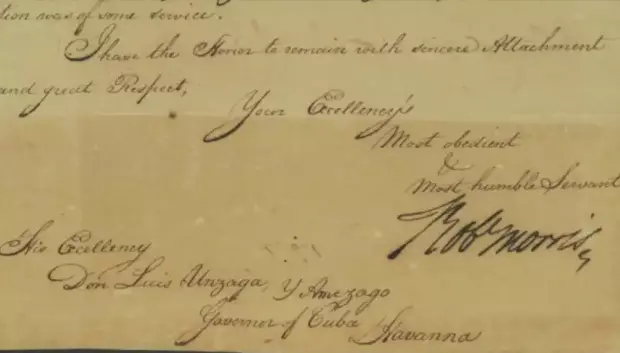 tion was of some service.
I have the Honor to remain with sincere Attachment
and great Respect,
Your Excellency's
Most obedient
&
Most humble Servant
Robt Morris
His Excellency
Don Luis Unzaga, Y Amezago
Governor of Cuba
Havanna